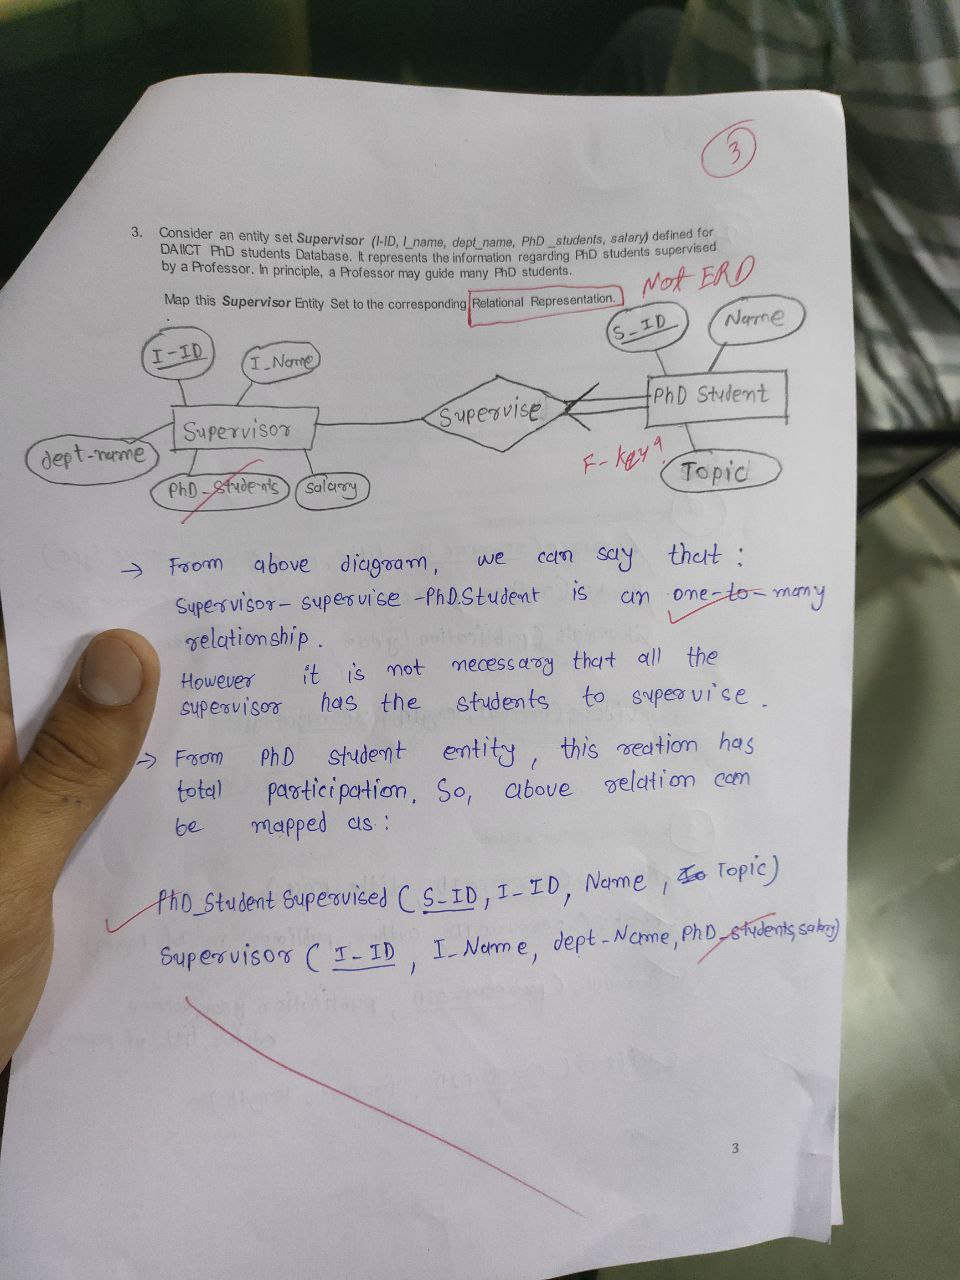 3
3. Consider an entity set Supervisor (I-ID, I_name, dept_name, PhD _students, salary) defined for
DAIICT PhD students Database. It represents the information regarding PhD students supervised
by a Professor. In principle, a Professor may guide many PhD students.
Not ERD
Map this Supervisor Entity Set to the corresponding Relational Representation.
S_ID
Name
I-ID
I_Name
PhD Student
Supervise
Supervisor
dept-name
F-key?
Topic
PhD-Students
Salary
→ From above diagram, we can say that :
Supervisor- supervise -PhD.Student is an one-to-many
relationship.
However it is not necessary that all the
supervisor has the students to supervise.
→ From PhD student entity, this reation has
total participation. So, above relation can
be mapped as :
PhD_Student Supervised ( S-ID, I-ID, Name, Topic)
Supervisor ( I-ID, I_Name, dept-Name, PhD-students, salary)
3